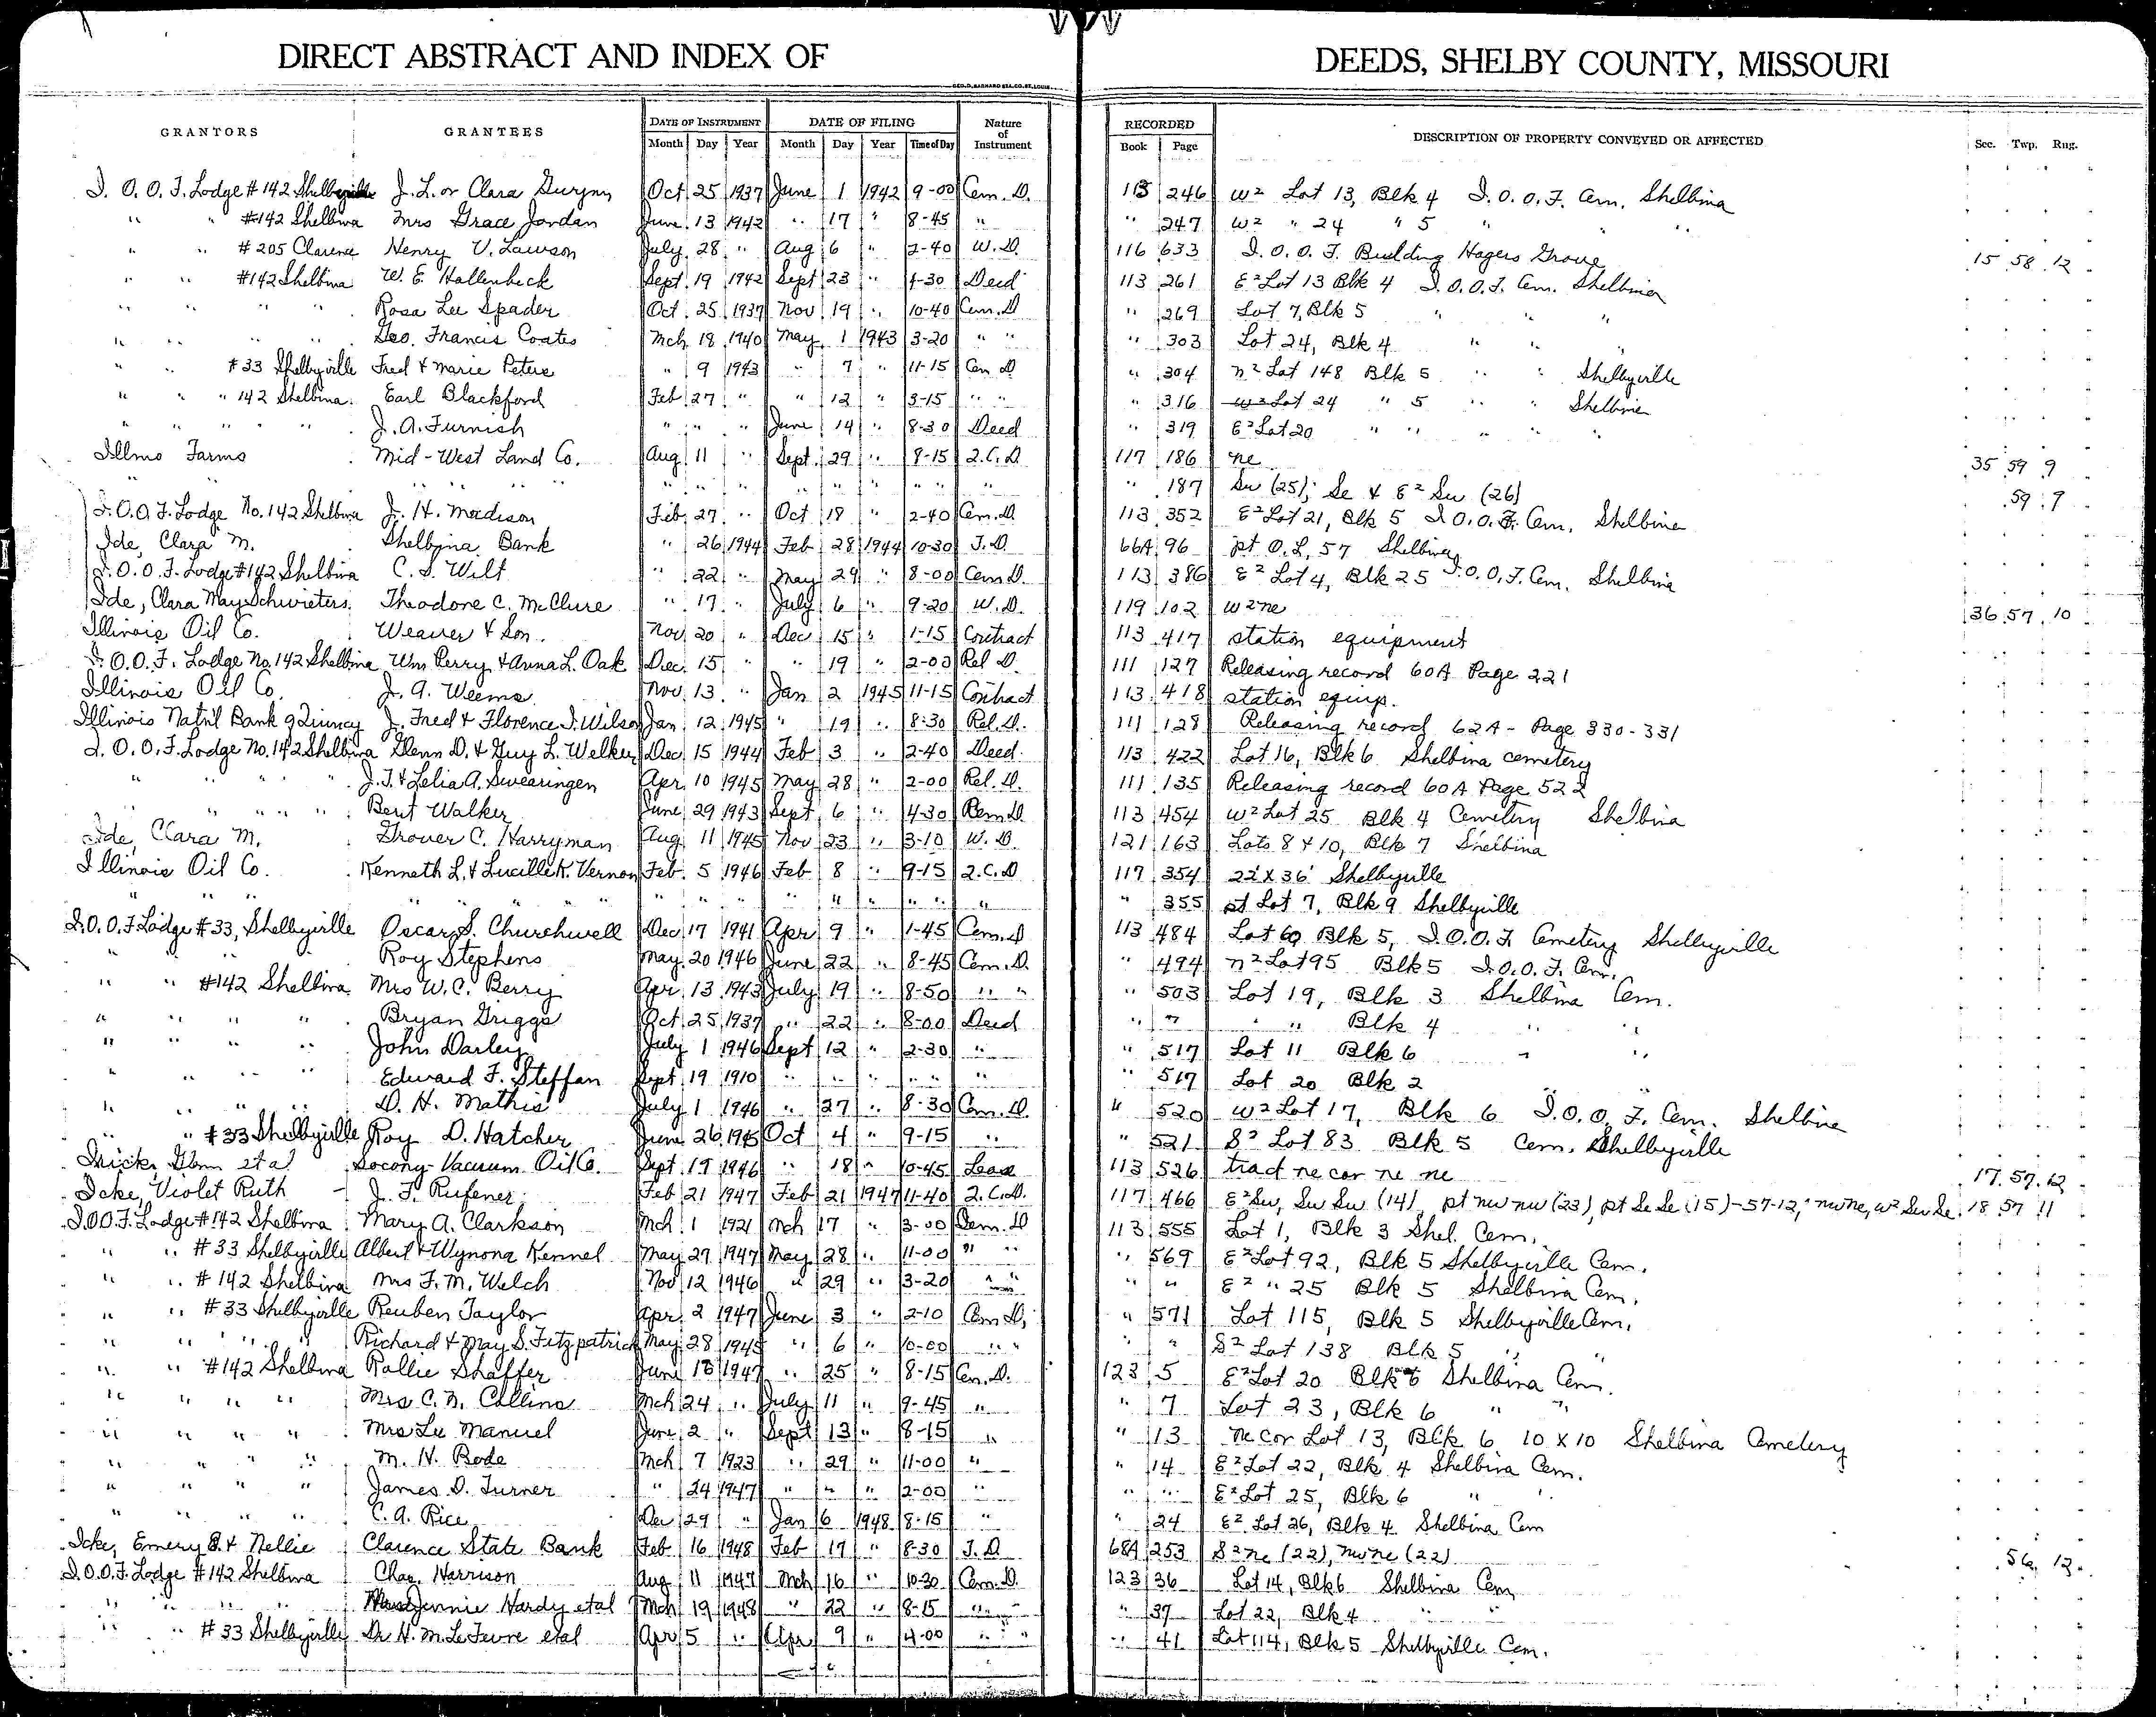 DIRECT ABSTRACT AND INDEX OF DEEDS, SHELBY COUNTY, MISSOURI
GEO. D. BARNARD STA. CO. ST. LOUIS
GRANTORS GRANTEES DATE OF INSTRUMENT DATE OF FILING Nature of Instrument RECORDED DESCRIPTION OF PROPERTY CONVEYED OR AFFECTED Sec. Twp. Rng.
Month Day Year Month Day Year Time of Day Book Page
I. O. O. F. Lodge #142 Shelbyville J. L. or Clara Gwynn Oct 25 1937 June 1 1942 9-00 Cem. D. 113 246 W2 Lot 13, Blk 4 I. O. O. F. Cem. Shelbina
" " #142 Shelbina Mrs Grace Jordan June 13 1942 " 17 " 8-45 " " 247 W2 " 24 " 5 " "
" " #205 Clarence Henry V. Lawson July 28 " Aug 6 " 2-40 W. D. 116 633 I. O. O. F. Building Hagers Grove 15 58 12
" " #142 Shelbina W. E. Hollenbeck Sept 19 1942 Sept 23 " 4-30 Deed 113 261 E2 Lot 13 Blk 4 I. O. O. F. Cem. Shelbina
" " " " Rosa Lee Spader Oct. 25 1937 Nov 19 " 10-40 Cem. D " 269 Lot 7, Blk 5 " " "
" " " " Geo. Francis Coates Mch 18 1940 May 1 1943 3-20 " " " 303 Lot 24, Blk 4 " " "
" " #33 Shelbyville Fred & Marie Peters " 9 1943 " 7 " 11-15 Cem D " 304 N2 Lot 148 Blk 5 " " Shelbyville
" " " 142 Shelbina Earl Blackford Feb 27 " " 12 " 3-15 " " " 316 W2 Lot 24 " 5 " " Shelbina
" " " " " J. A. Furnish " " " June 14 " 8-30 Deed " 319 E2 Lot 20 " " " " "
Illmo Farms Mid-West Land Co. Aug 11 " Sept. 29 " 8-15 Q. C. D. 117 186 ne 35 59 9
" " " " " " " " " " " " " " " 187 Sw (25); Se & E2 Sw (26) 59 9
I. O. O. F. Lodge No. 142 Shelbina J. H. Madison Feb. 27 " Oct 18 " 2-40 Cem. D. 113 352 E2 Lot 21, Blk 5 I. O. O. F. Cem. Shelbina
Ide, Clara M. Shelbina Bank " 26 1944 Feb 28 1944 10-30 T. D. 66A 96 pt O. L. 57 Shelbina
I. O. O. F. Lodge #142 Shelbina C. S. Wilt " 22 " May 29 " 8-00 Cem D. 113 386 E2 Lot 4, Blk 25 I. O. O. F. Cem. Shelbina
Ide, Clara May Schwieters Theodore C. McClure " 17 " July 6 " 9-20 W. D. 119 102 W2 ne 36 57 10
Illinois Oil Co. Weaver & Son. Nov 20 " Dec 15 " 1-15 Contract 113 417 station equipment
I. O. O. F. Lodge No. 142 Shelbina Wm Perry & Anna L. Oak Dec. 15 " " 19 " 2-00 Rel D. 111 127 Releasing record 60A Page 221
Illinois Oil Co. J. A. Weems Nov. 13 " Jan 2 1945 11-15 Contract 113 418 station equip.
Illinois Nat'l Bank Quincy J. Fred & Florence I. Wilson Jan. 12 1945 " 19 " 8:30 Rel. D. 111 128 Releasing record 62A - Page 330-331
I. O. O. F. Lodge No. 142 Shelbina Glenn D. & Guy L. Welker Dec. 15 1944 Feb 3 " 2-40 Deed 113 422 Lot 16, Blk 6 Shelbina cemetery
" " " " J. T. & Lelia A. Swearingen Apr. 10 1945 May 28 " 2-00 Rel. D. 111 135 Releasing record 60A Page 522
" " " " " Bert Walker June 29 1943 Sept 6 " 4-30 Cem D 113 454 W2 Lot 25 Blk 4 Cemetery Shelbina
Ide, Clara M. Grover C. Harryman Aug. 11 1945 Nov 23 " 3-10 W. D. 121 163 Lots 8 & 10, Blk 7 Shelbina
Illinois Oil Co. Kenneth L. & Lucille K. Vernon Feb. 5 1946 Feb 8 " 9-15 Q. C. D 117 354 22' x 36' Shelbyville
" " " " " " " " " " " " " " " 355 pt Lot 7, Blk 9 Shelbyville
I. O. O. F Lodge #33, Shelbyville Oscar S. Churchwell Dec 17 1941 Apr 9 " 1-45 Cem. D 113 484 Lot 60 Blk 5, I. O. O. F Cemetery Shelbyville
" " " Roy Stephens May 20 1946 June 22 " 8-45 Cem. D. " 494 N2 Lot 95 Blk 5 I. O. O. F. Cem.
" " #142 Shelbina Mrs W. C. Berry Apr. 13 1943 July 19 " 8-50 " " " 503 Lot 19, Blk 3 Shelbina Cem.
" " " " Bryan Griggs Oct. 25 1937 " 22 " 8-00 Deed " " " " Blk 4 " "
" " " " John Darley July 1 1946 Sept 12 " 2-30 " " 517 Lot 11 Blk 6 " "
" " " " Edward F. Steffan Sept. 19 1910 " " " " " " 517 Lot 20 Blk 2 " "
" " " " D. H. Mathis July 1 1946 " 27 " 8-30 Cem. D. " 520 W2 Lot 17, Blk 6 I. O. O. F. Cem. Shelbina
" " #33 Shelbyville Roy D. Hatcher June 26 1945 Oct 4 " 9-15 " " 521 S2 Lot 83 Blk 5 Cem. Shelbyville
Glenn et al Socony-Vacuum Oil Co. Sept. 19 1946 " 18 " 10-45 Lease 113 526 tract ne cor ne ne 17 57 12
Icke, Violet Ruth J. F. Rufener Feb 21 1947 Feb 21 1947 11-40 Q. C. D. 117 466 E2 Sw, Sw Sw (14), pt nw nw (23), pt Se Se (15)-57-12; nw ne, W2 Sw Se 18 57 11
I. O. O. F. Lodge #142 Shelbina Mary A. Clarkson Mch. 1 1921 Mch 17 " 3-00 Cem. D 113 555 Lot 1, Blk 3 Shel. Cem.
" " #33 Shelbyville Albert & Wynona Kennel May 27 1947 May 28 " 11-00 " " " 569 E2 Lot 92, Blk 5 Shelbyville Cem.
" " #142 Shelbina Mrs F. M. Welch Nov 12 1946 " 29 " 3-20 " " " " E2 " 25 Blk 5 Shelbina Cem.
" " #33 Shelbyville Reuben Taylor Apr. 2 1947 June 3 " 2-10 Cem D. " 571 Lot 115, Blk 5 Shelbyville Cem.
" " " " Richard & May S. Fitzpatrick May 28 1945 " 6 " 10-00 " " " " S2 Lot 138 Blk 5 " "
" " #142 Shelbina Rallie Shaffer June 18 1947 " 25 " 8-15 Cem. D. 123 5 E2 Lot 20 Blk 6 Shelbina Cem.
" " " " Mrs C. N. Collins Mch 24 " July 11 " 9-45 " " 7 Lot 23, Blk 6 " "
" " " " Mrs Lee Manuel June 2 " Sept 13 " 8-15 " " 13 ne cor Lot 13, Blk 6 10 x 10 Shelbina Cemetery
" " " " M. H. Bode Mch 7 1923 " 29 " 11-00 " " 14 E2 Lot 22, Blk 4 Shelbina Cem.
" " " " James D. Turner " 24 1947 " " " 2-00 " " " E2 Lot 25, Blk 6 " "
" " " " C. A. Rice Dec 29 " Jan 6 1948 8-15 " " 24 E2 Lot 26, Blk 4 Shelbina Cem
Icke, Emery & Nellie Clarence State Bank Feb 16 1948 Feb 19 " 8-30 T. D. 68A 253 S2 ne (22), nw ne (22) 56 12
I. O. O. F. Lodge #142 Shelbina Chas. Harrison Aug 11 1947 Mch 16 " 10-30 Cem. D. 123 36 Lot 14, Blk 6 Shelbina Cem
" " " " Jennie Hardy et al Mch 19 1948 " 22 " 8-15 " " " 37 Lot 22, Blk 4 " "
" " #33 Shelbyville Dr H. M. LeFevre et al Apr 5 " Apr 9 " 4-00 " " " 41 Lot 114, Blk 5 Shelbyville Cem.